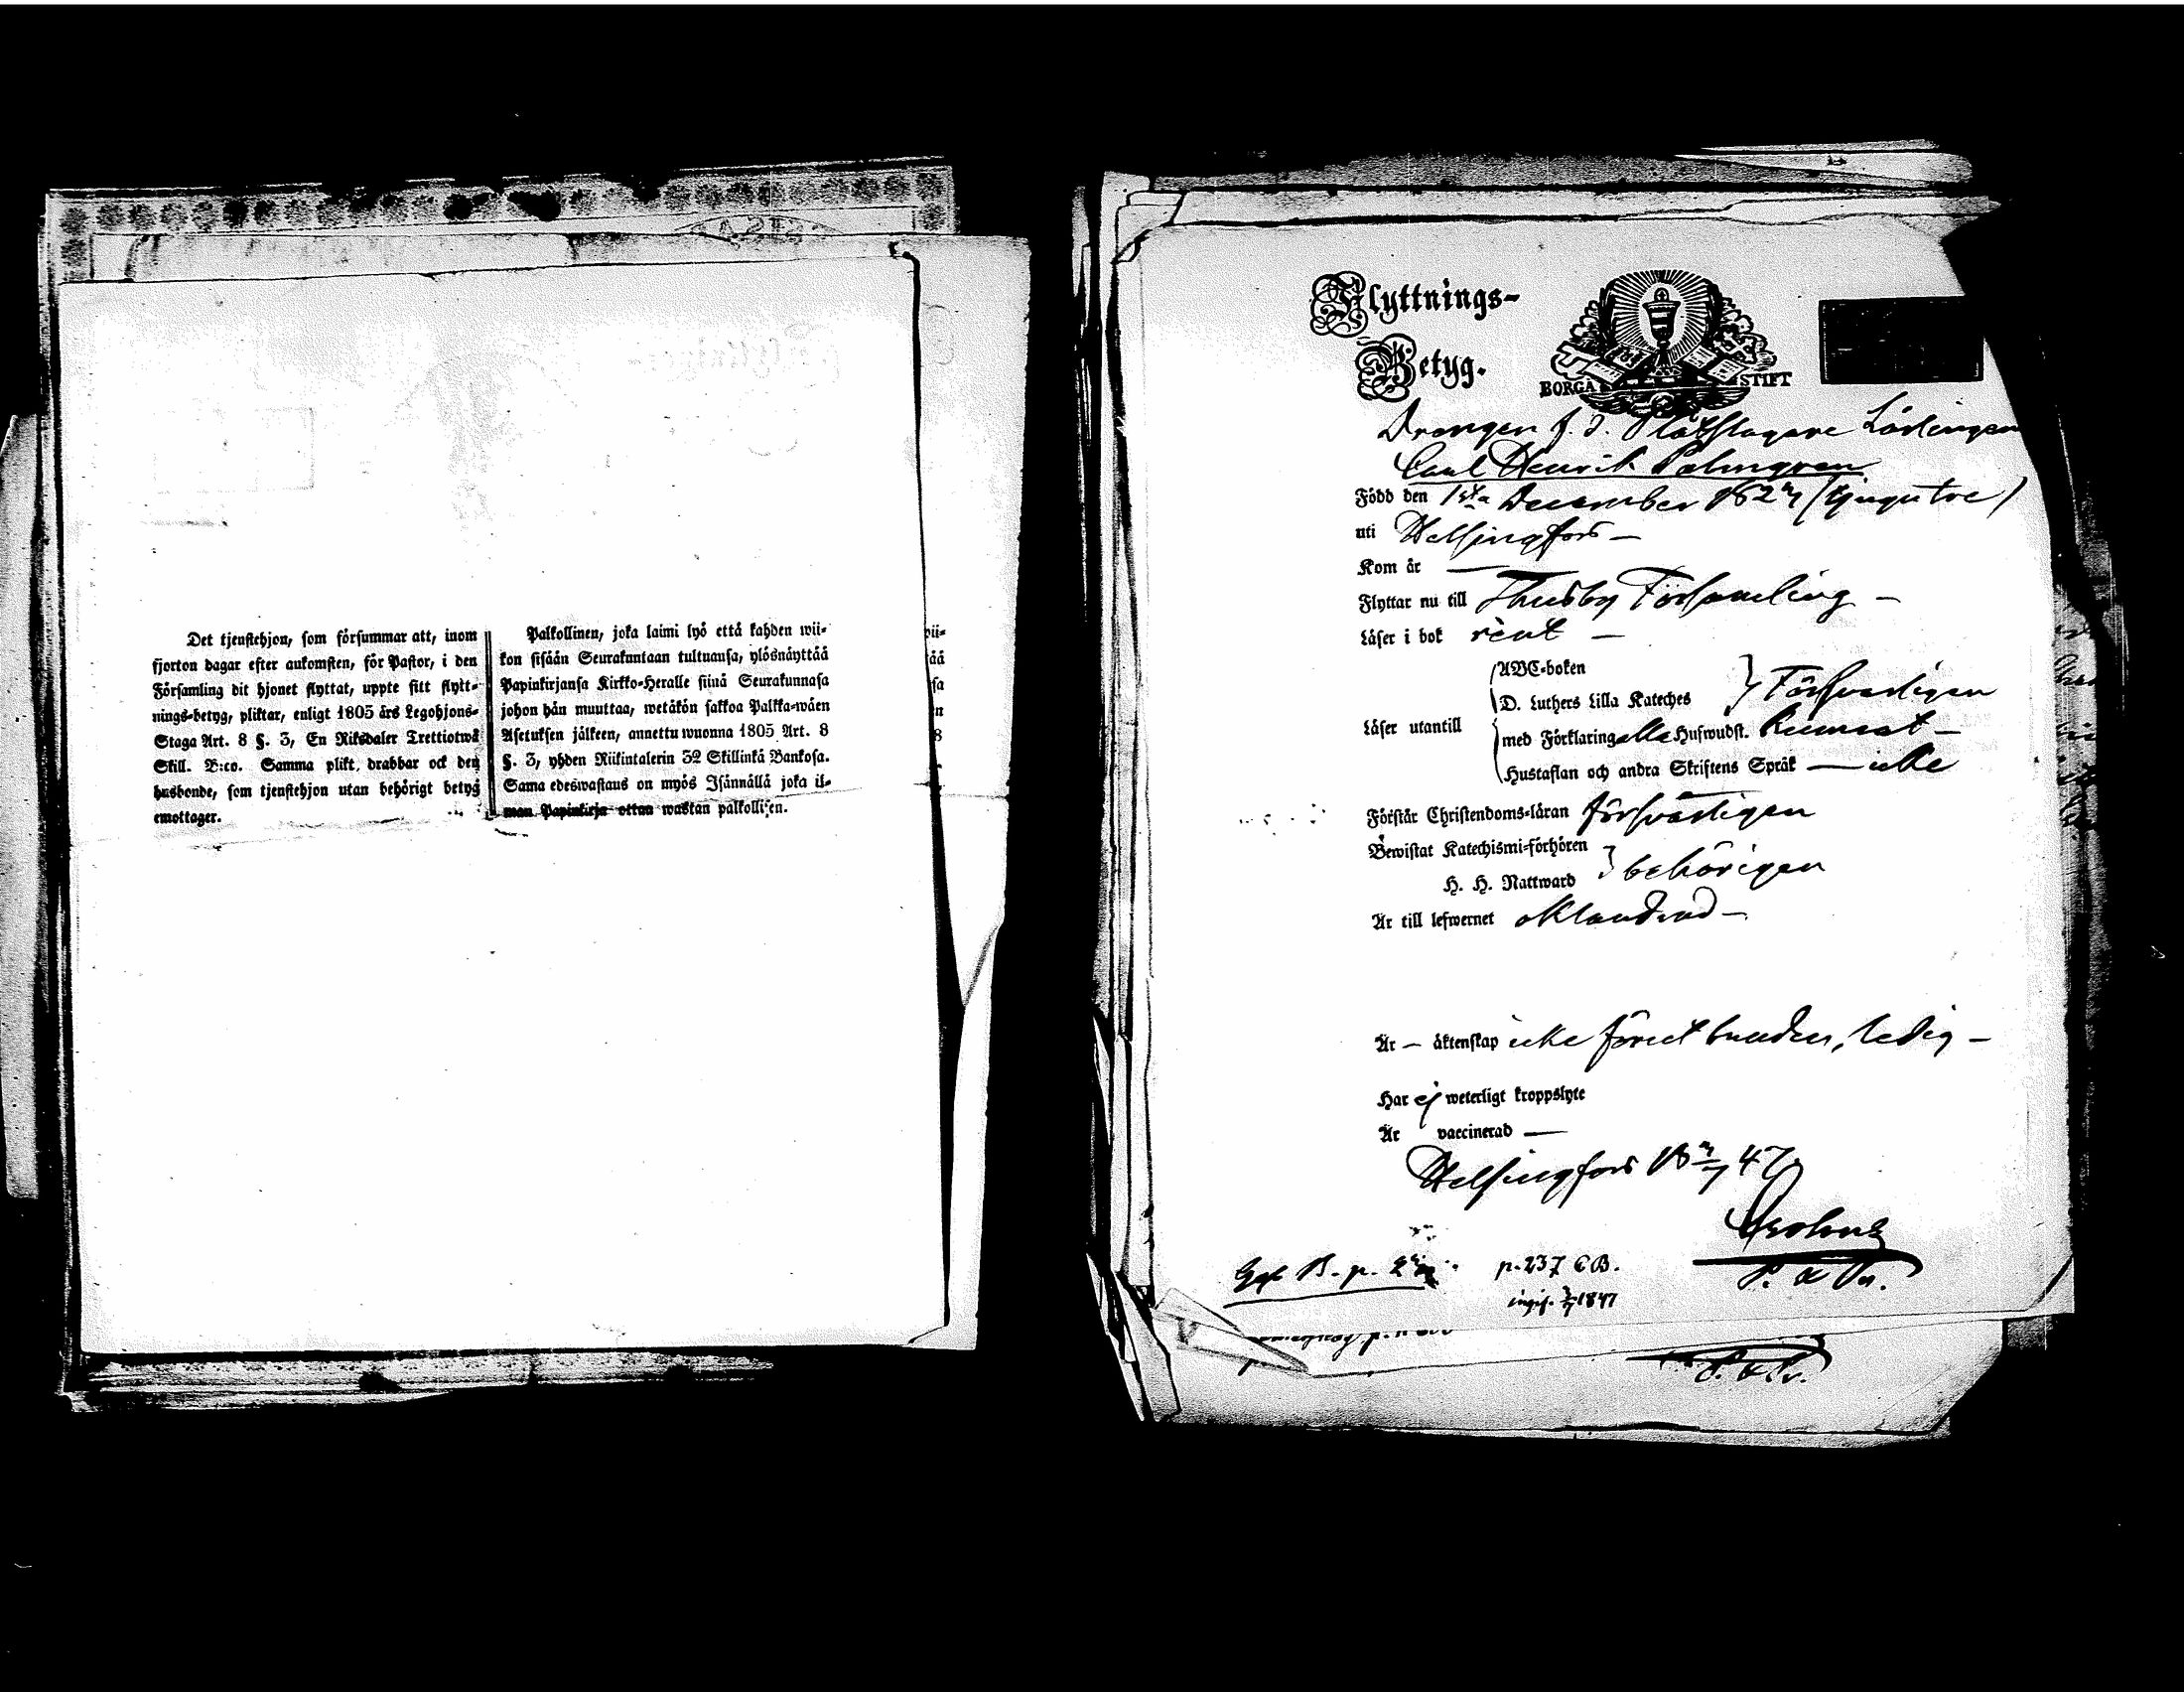 Det tjenstehjon, som försummar att, inom
fjorton dagar efter ankomsten, för Pastor, i den
Församling dit hjonet flyttat, uppte sitt flytt-
nings-betyg, pliktar, enligt 1805 års Legohjons-
Staga Art. 8 §. 3, En Riksdaler Trettiotwå
Skill. B:co. Samma plikt, drabbar ock den
husbonde, som tjenstehjon utan behörigt betyg
emottager.
Palkollinen, joka laimi lyö että kahden wii-
kon sisään Seurakuntaan tultuansa, ylösnäyttää
Papinkirjansa Kirkko-Heralle siinä Seurakunnasa
johon hän muuttaa, wetäkön sakkoa Palkka-wäen
Asetuksen jälkeen, annettu wuonna 1805 Art. 8
§. 3, yhden Riikintalerin 32 Skillinkä Bankosa.
Sama edeswastaus on myös Isännällä joka il-
man Papinkirja ottan wastan palkollisen.
Flyttnings-
Betyg.
BORGÅ STIFT
Drengen f. d. Plåtslagare Lärlingen
Carl Henrik Palmgren
Född den 1sta December 1823 (tjugutre)
uti Helsingfors —
Kom år —
Flyttar nu till Thusby Församling —
Läser i bok rent —
ABC-boken
D. Luthers Lilla Kateches } Försvarligen
Läser utantill
med Förklaring Huswudst.
Hustaflan och andra Skriftens Språk — icke
Förstår Christendoms-läran försvarligen
Bewistat Katechismi-förhören
H. H. Nattward } behörigen
Är till lefwernet oklandrad —
Är — äktenskap icke förut bunden, ledig —
Har ej weterligt kroppslyte
Är vaccinerad —
Helsingfors 18 3/7 47
P.
B. p.
p. 237 CB.
1847